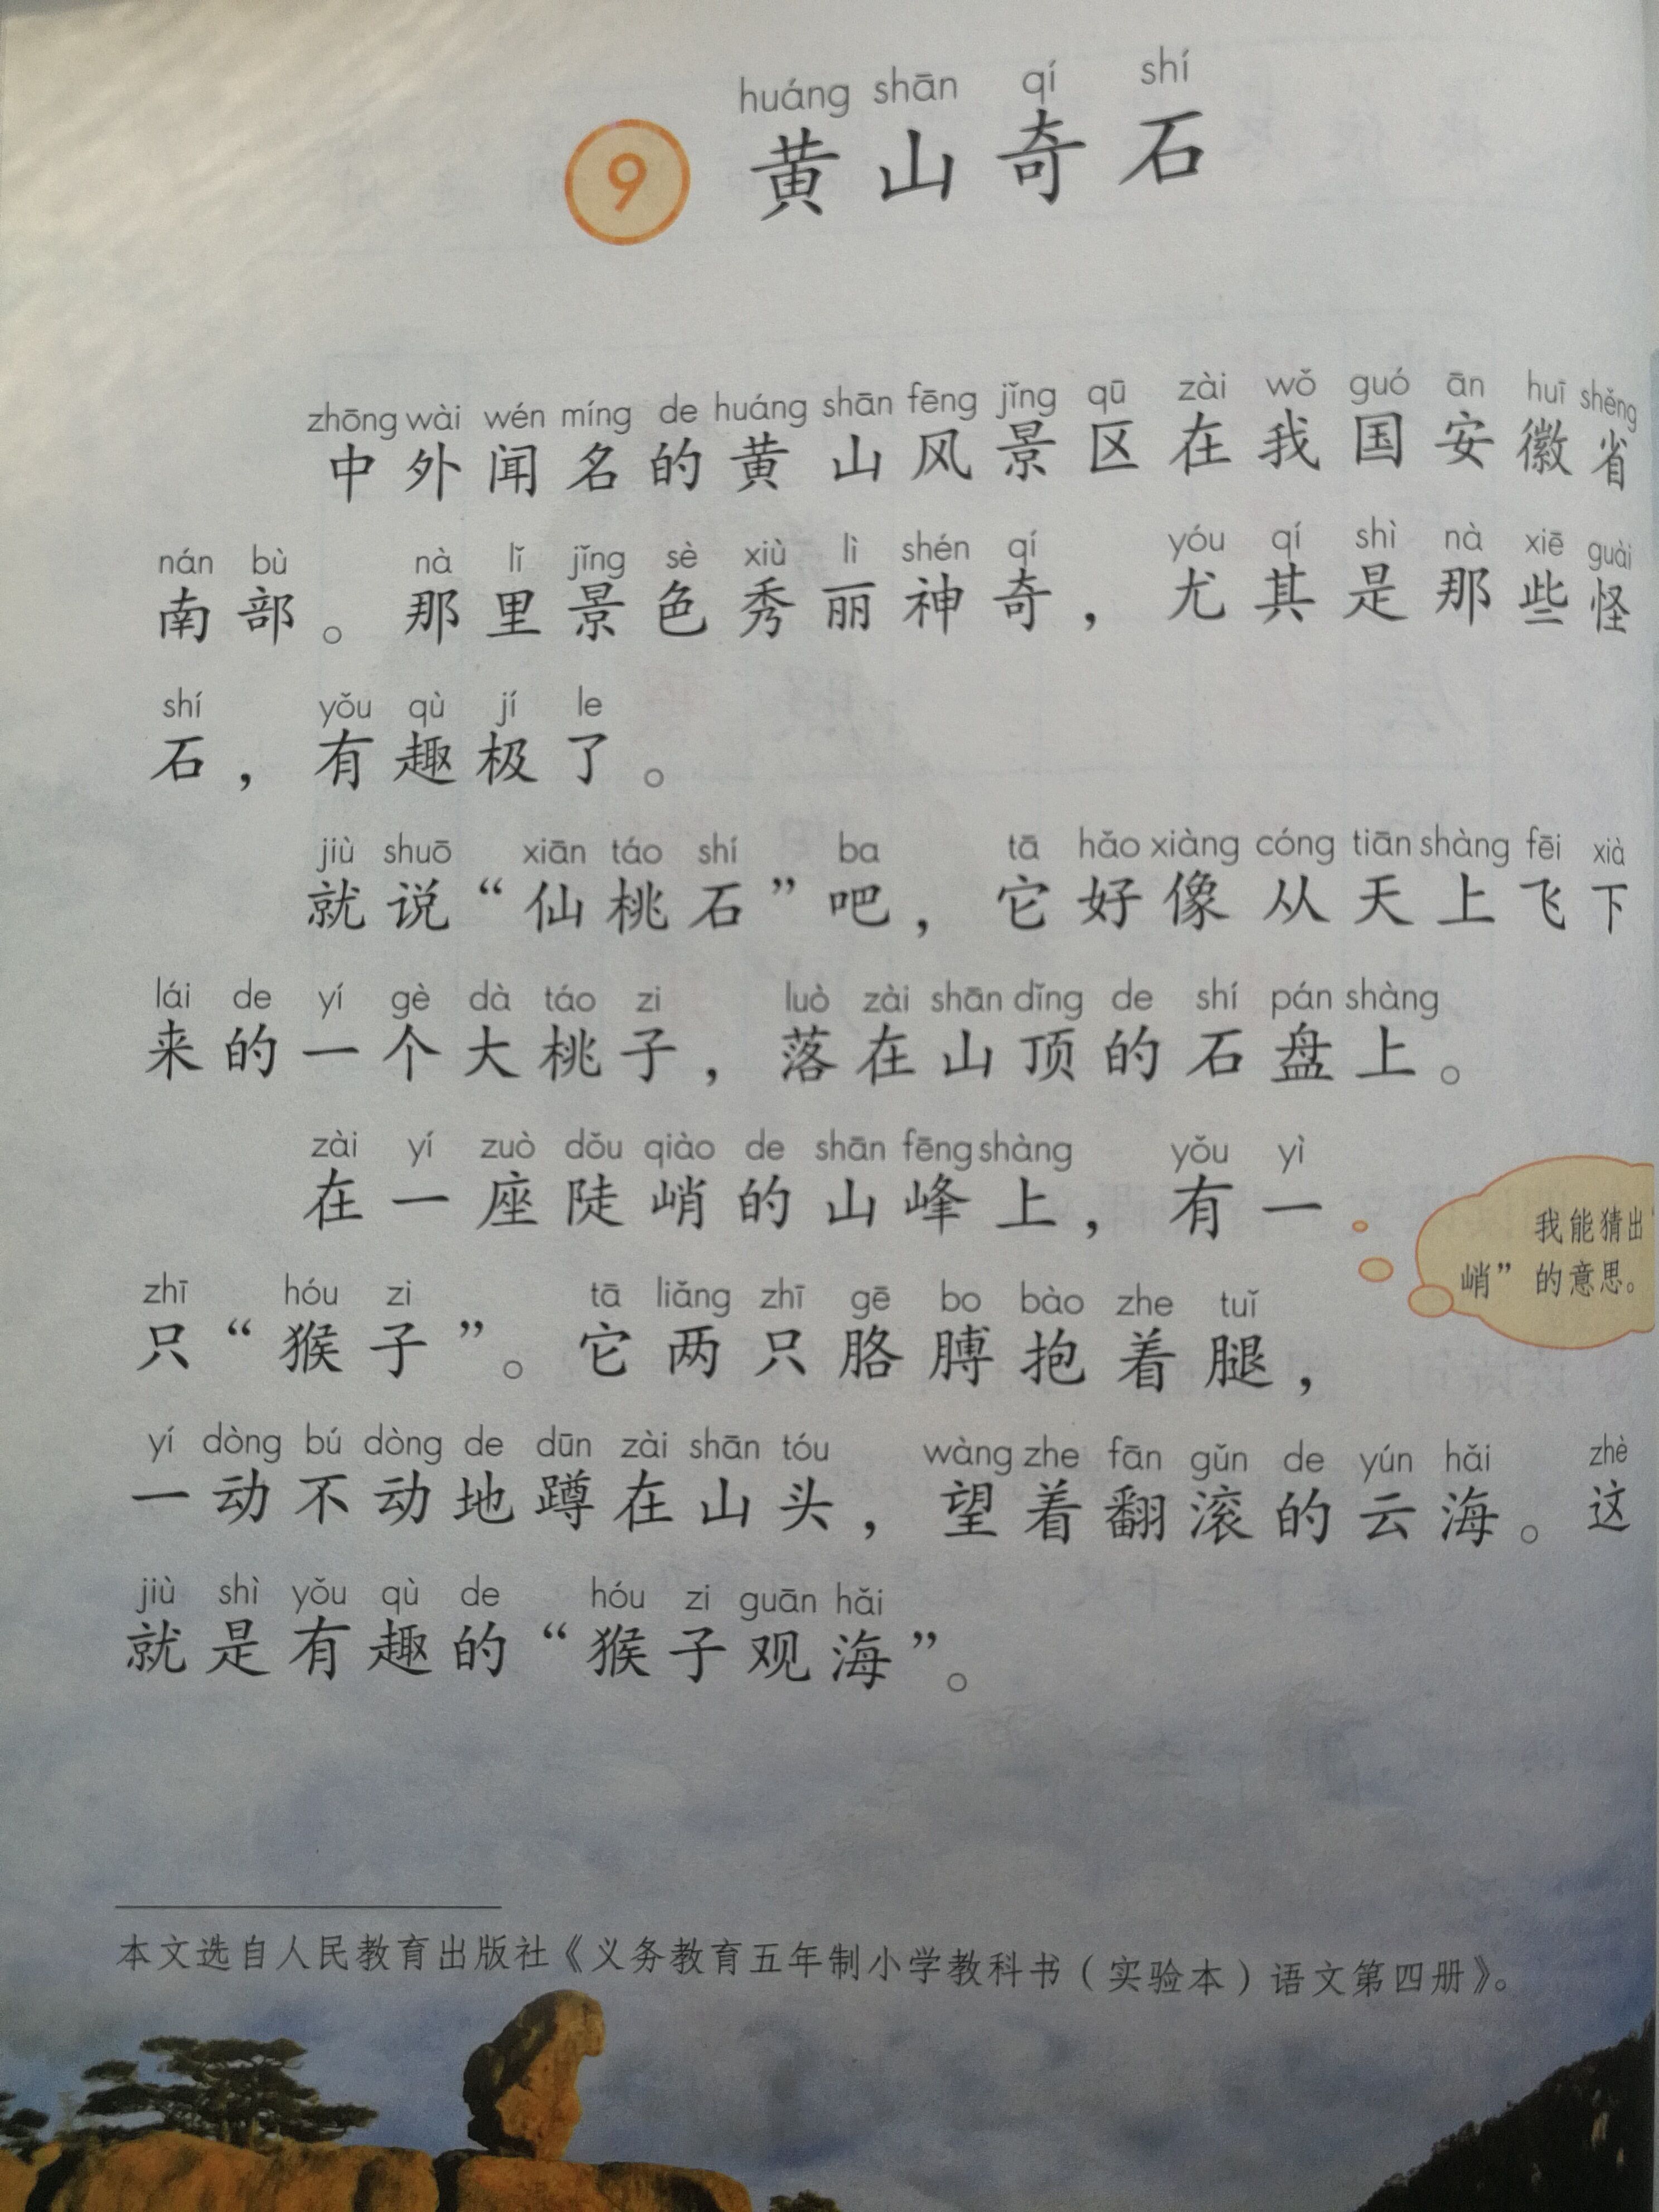 huáng shān qí shí
9 黄山奇石
zhōng wài wén míng de huáng shān fēng jǐng qū zài wǒ guó ān huī shěng
中外闻名的黄山风景区在我国安徽省
nán bù nà lǐ jǐng sè xiù lì shén qí yóu qí shì nà xiē guài
南部。那里景色秀丽神奇，尤其是那些怪
shí yǒu qù jí le
石，有趣极了。
jiù shuō xiān táo shí ba tā hǎo xiàng cóng tiān shàng fēi xià
就说“仙桃石”吧，它好像从天上飞下
lái de yí gè dà táo zi luò zài shān dǐng de shí pán shàng
来的一个大桃子，落在山顶的石盘上。
zài yí zuò dǒu qiào de shān fēng shàng yǒu yì
在一座陡峭的山峰上，有一
我能猜出“
峭”的意思。
zhī hóu zi tā liǎng zhī gē bo bào zhe tuǐ
只“猴子”。它两只胳膊抱着腿，
yí dòng bú dòng de dūn zài shān tóu wàng zhe fān gǔn de yún hǎi zhè
一动不动地蹲在山头，望着翻滚的云海。这
jiù shì yǒu qù de hóu zi guān hǎi
就是有趣的“猴子观海”。
本文选自人民教育出版社《义务教育五年制小学教科书（实验本）语文第四册》。